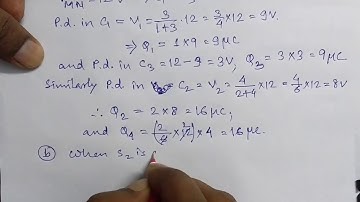 MN = 12V
P.d. in C₁ = V₁ = 3/(1+3) · 12 = 3/4 × 12 = 9V.
⇒ Q₁ = 1 × 9 = 9μC
and P.d. in C₃ = 12 - 9 = 3V, Q₃ = 3 × 3 = 9μC
Similarly P.d in C₂ = V₂ = 4/(2+4) × 12 = 4/6 × 12 = 8V
∴ Q₂ = 2 × 8 = 16 μC,
and Q₄ = (2/6 × 12) × 4 = 16 μC.
(b) When S₂ is